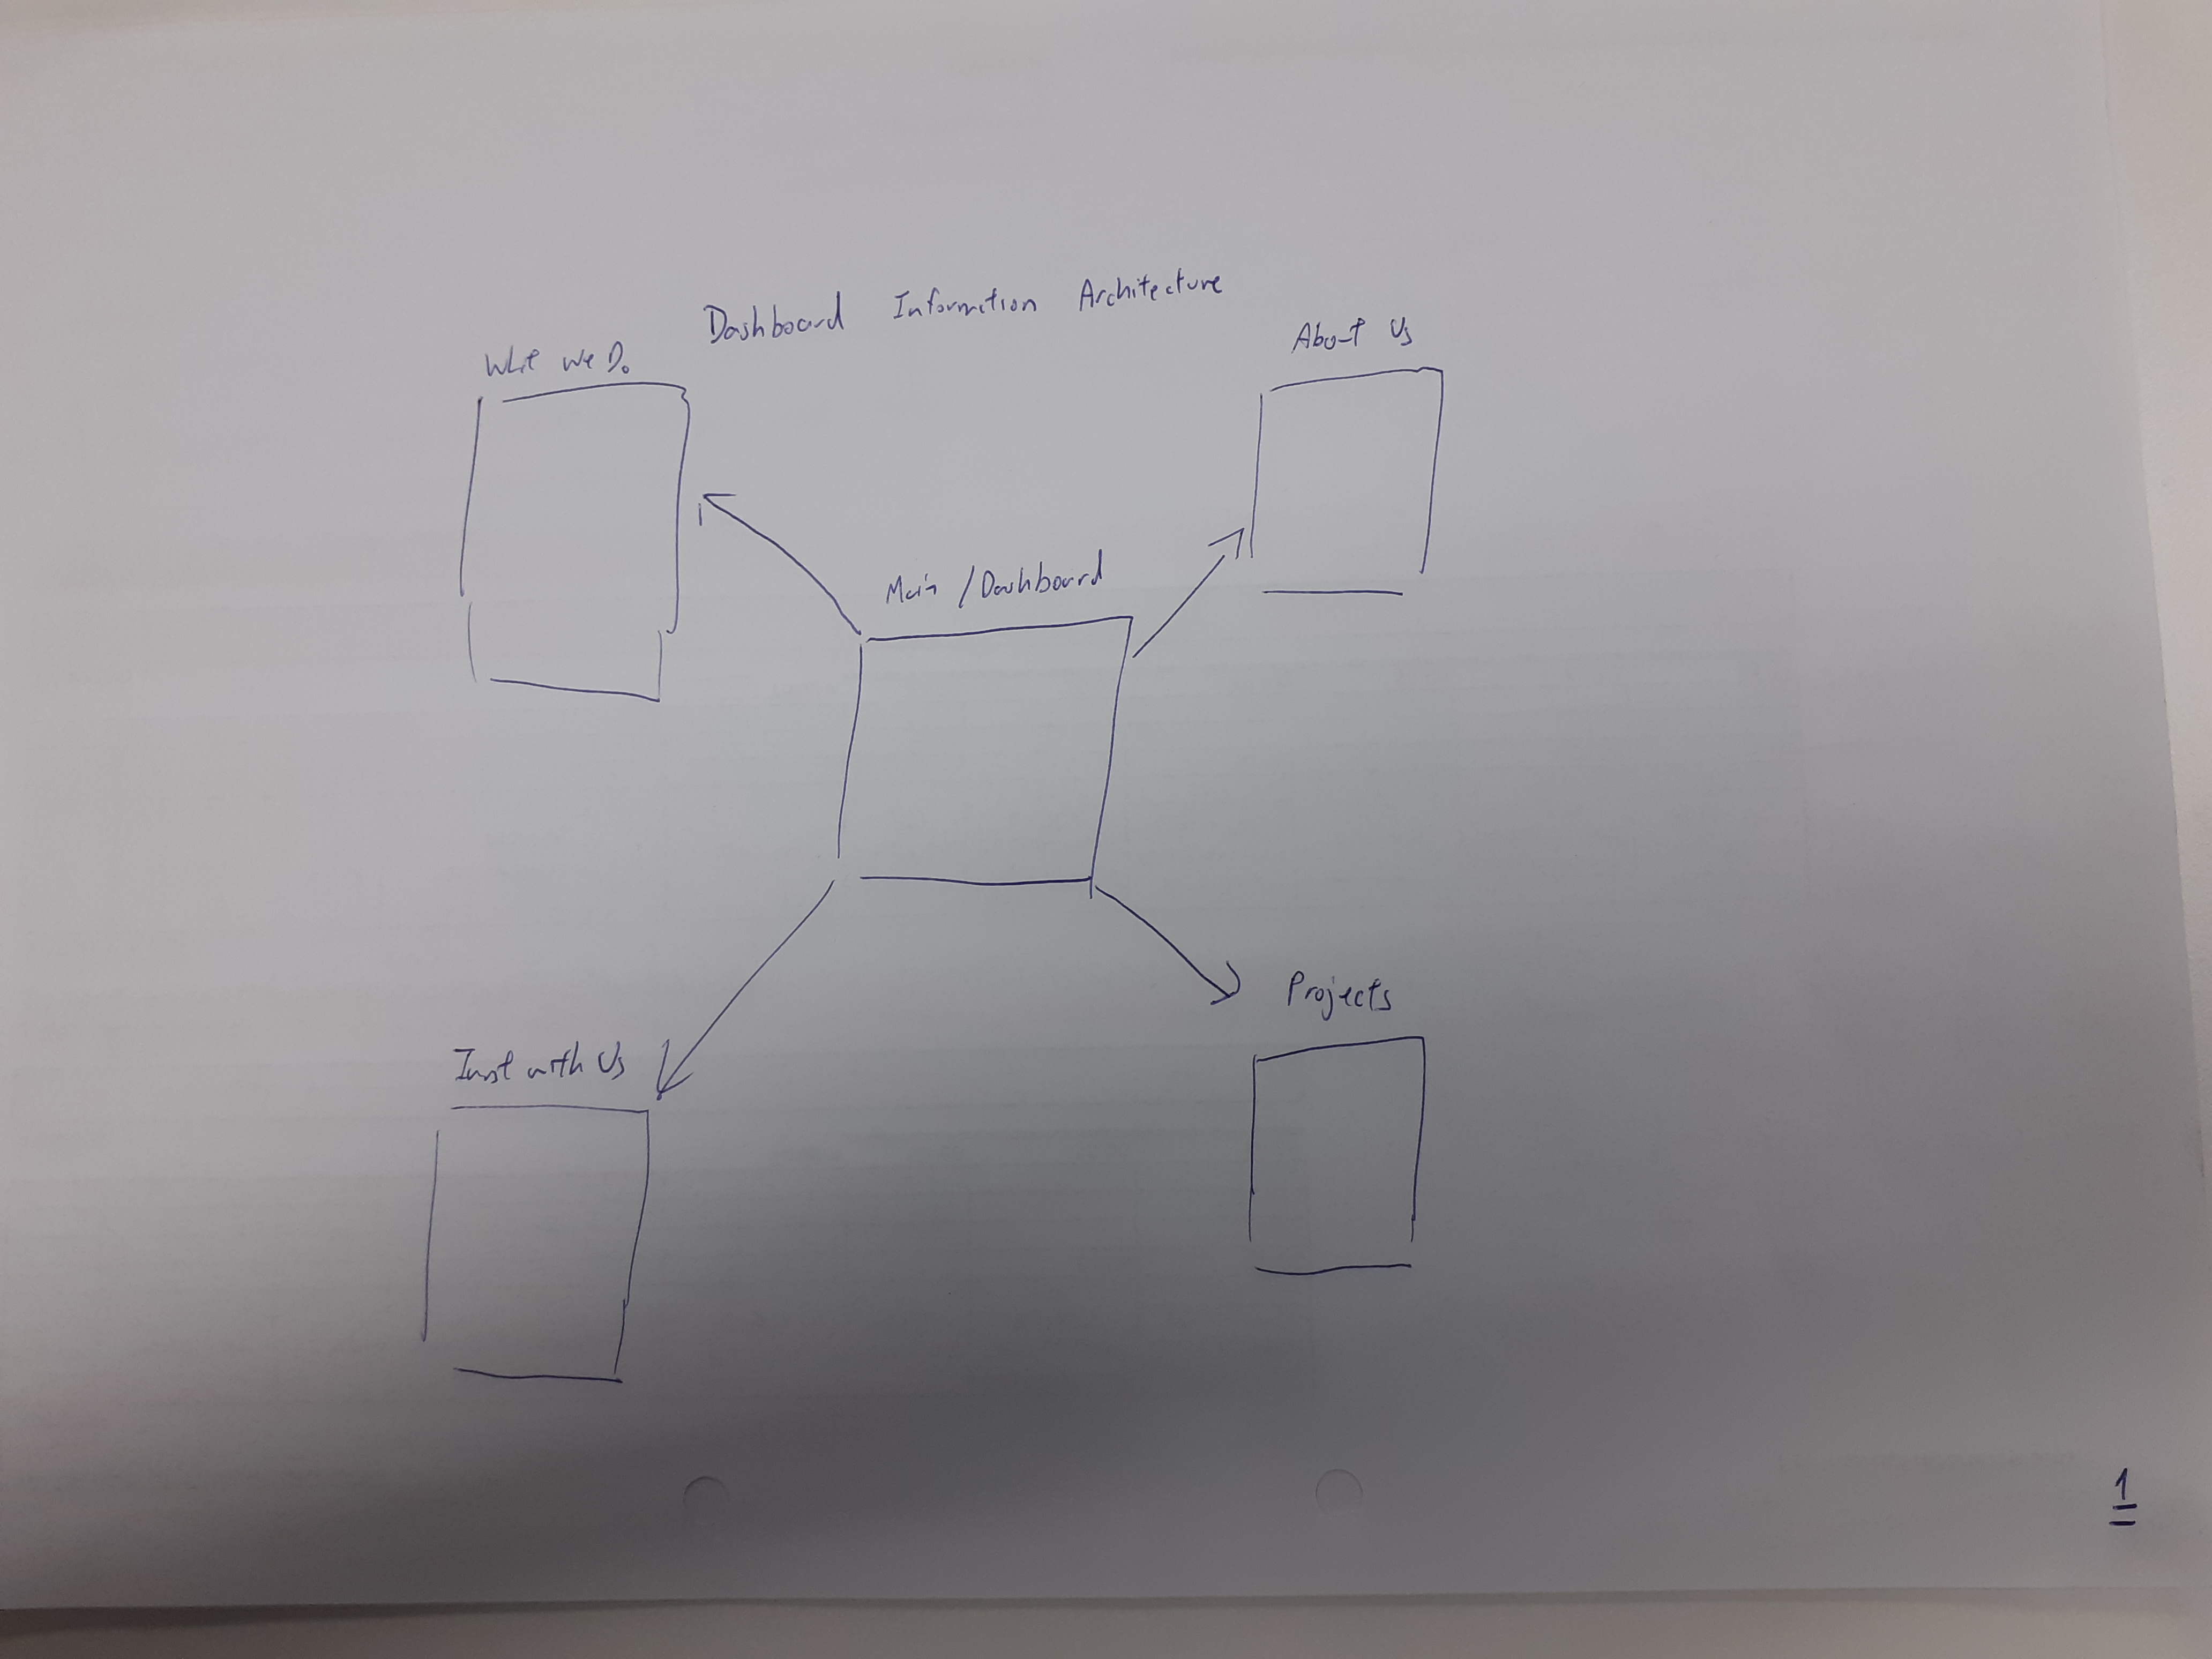 Dashboard Information Architecture
What We Do
About Us
Main / Dashboard
Projects
Invest with Us
1